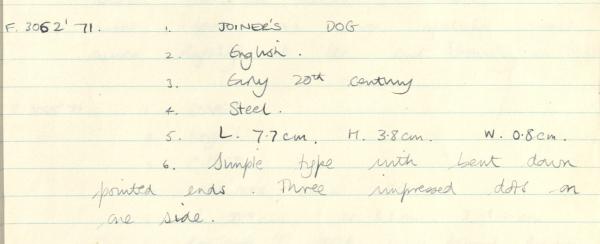 F. 3062' 71. 1. JOINER'S DOG
2. English.
3. Early 20th century
4. Steel.
5. L. 7.7cm. H. 3.8cm. W. 0.8cm.
6. Simple type with bent down
pointed ends. Three impressed dots on
one side.